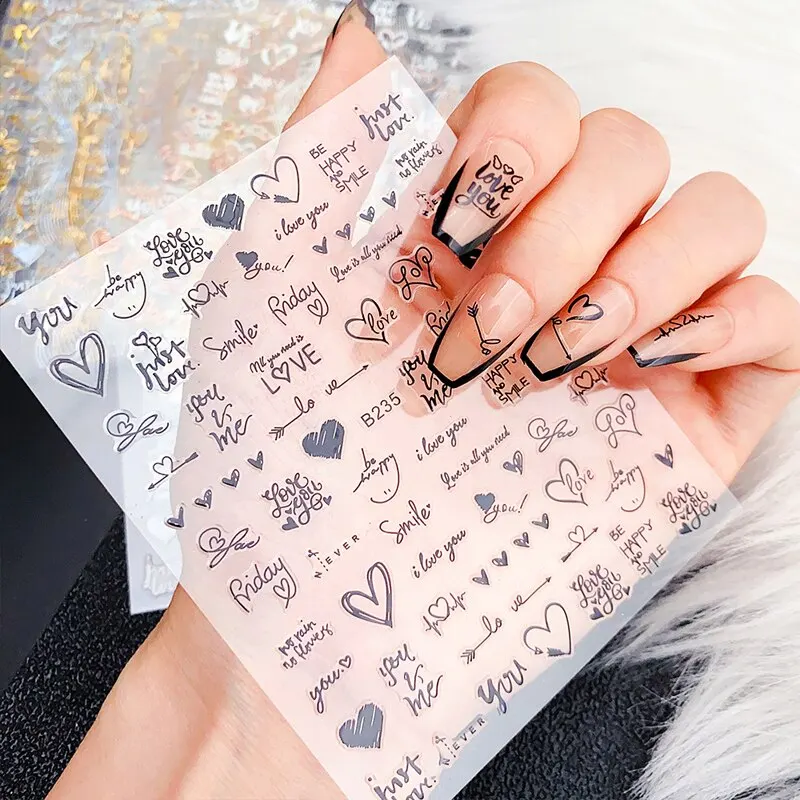 just
love.
BE
HAPPY
AND
SMILE
no rain
no flowers
love
you
Love
you
i love you
you!
Love is all you need
LOVE
be
happy
you
just
love.
smile
Friday
love
All you need is
LOVE
you
&
me
lo ve
B235
you
&
me
HAPPY
AND
SMILE
i love you
Love is all you need
love
be
happy
be
happy
Love
you
smile
you!
BE
HAPPY
AND
SMILE
Love
you
NEVER
i love you
Friday
lo ve
Love
you
no rain
no flowers
you
you
&
me
you
NEVER
just
love.